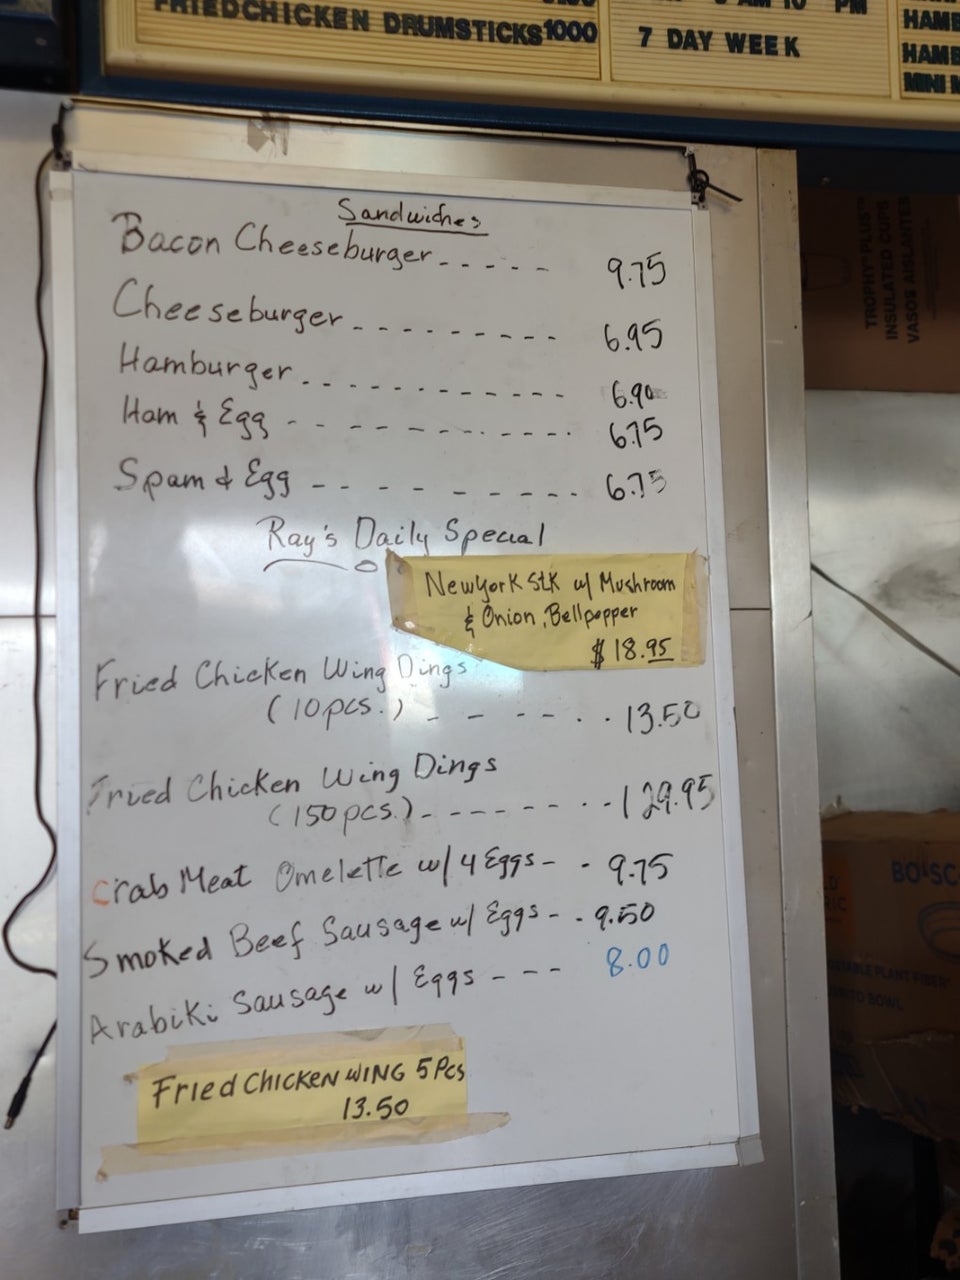 FRIEDCHICKEN DRUMSTICKS 1000
7 DAY WEEK
PM
MINI
Sandwiches
Bacon Cheeseburger - - - - - 9.75
Cheeseburger - - - - - - - - - 6.95
Hamburger - - - - - - - - - - - 6.90
Ham & Egg - - - - - - - - - - 6.75
Spam & Egg - - - - - - - - - 6.75
Ray's Daily Special
NewYork Stk w/ Mushroom
& Onion, Bellpepper
$18.95
Fried Chicken Wing Dings
(10pcs.) - - - - - - 13.50
Fried Chicken Wing Dings
(150pcs.) - - - - - - - - 129.95
Crab Meat Omelette w/ 4 Eggs - - 9.75
Smoked Beef Sausage w/ Eggs - - 9.50
Arabiki Sausage w/ Eggs - - - 8.00
Fried CHICKEN WING 5 Pcs
13.50
TROPHY PLUS™
INSULATED CUPS
VASOS AISLANTES
PLANT FIBER
BOWL